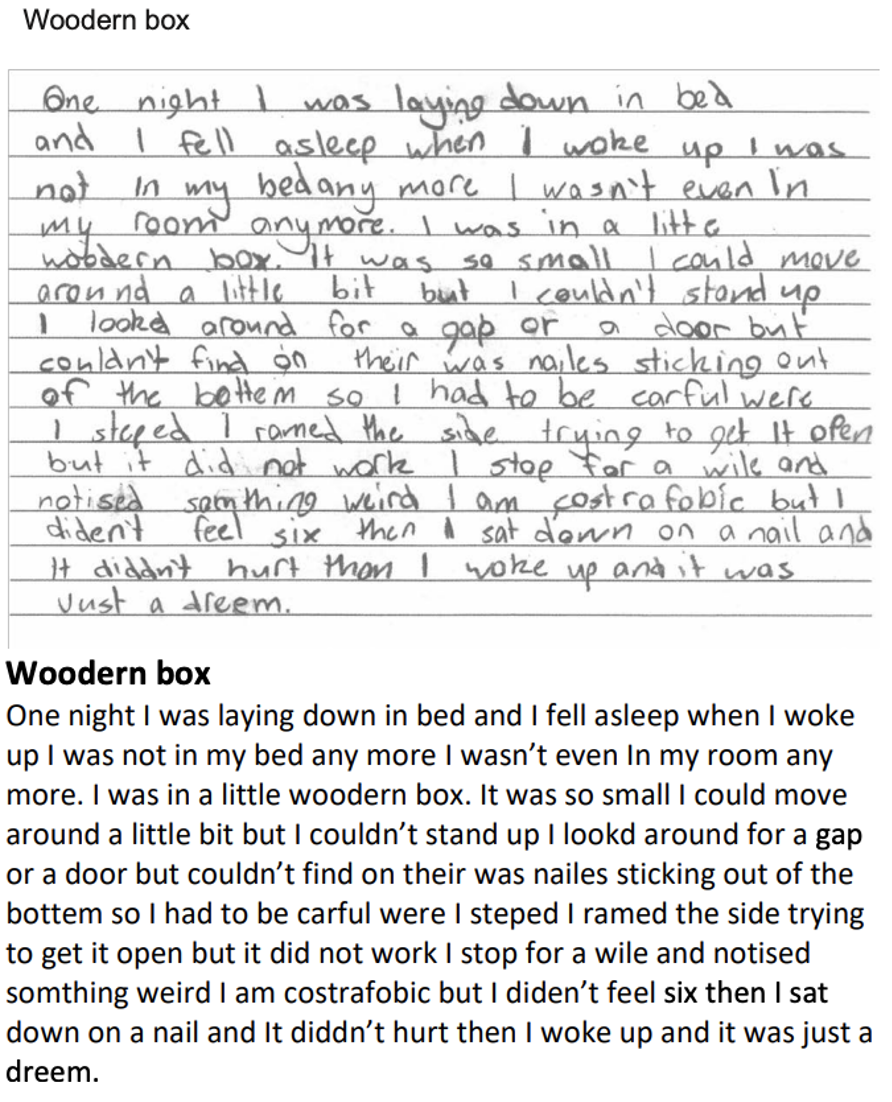 Woodern box
One night I was laying down in bed
and I fell asleep when I woke up I was
not in my bed any more I wasn't even In
my room anymore. I was in a little
woodern box. It was so small I could move
around a little bit but I couldn't stand up
I lookd around for a gap or a door but
couldn't find on their was nailes sticking out
of the bottem so I had to be carful were
I steped I ramed the side trying to get It open
but it did not work I stop for a wile and
notised somthing weird I am costrafobic but I
diden't feel six then I sat down on a nail and
It diddn't hurt then I woke up and it was
Just a dreem.
Woodern box
One night I was laying down in bed and I fell asleep when I woke
up I was not in my bed any more I wasn't even In my room any
more. I was in a little woodern box. It was so small I could move
around a little bit but I couldn't stand up I lookd around for a gap
or a door but couldn't find on their was nailes sticking out of the
bottem so I had to be carful were I steped I ramed the side trying
to get it open but it did not work I stop for a wile and notised
somthing weird I am costrafobic but I diden't feel six then I sat
down on a nail and It diddn't hurt then I woke up and it was just a
dreem.